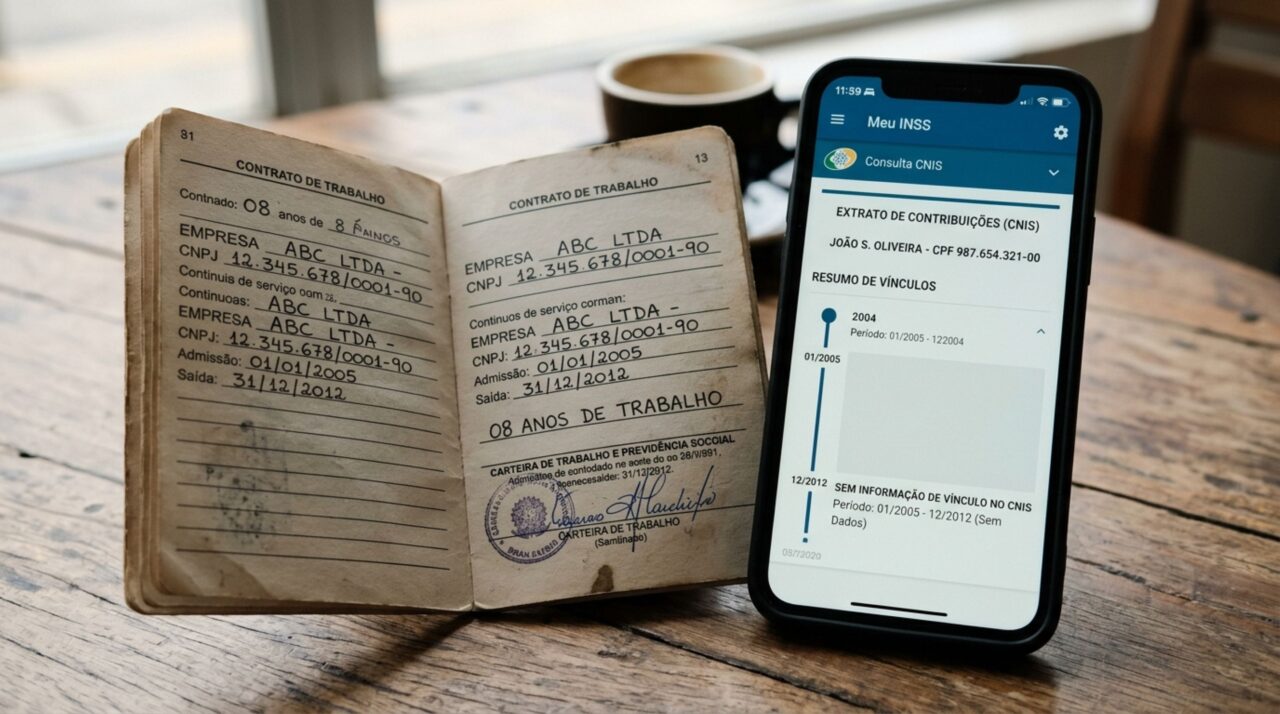 31
CONTRATO DE TRABALHO
Contnado: 08 anos de 8
EMPRESA ABC LTDA -
CNPJ 12.345.678/0001-90
Continuis de serviço oom 28.
Continuoas: ABC LTDA
EMPRESA ABC LTDA -
CNPJ: 12.345.678/0001-90
Admissão: 01/01/2005
Saída: 31/12/2012
13
CONTRATO DE TRABALHO
EMPRESA ABC LTDA
CNPJ 12.345.678/0001-90
Continuos de serviço corman:
EMPRESA ABC LTDA -
CNPJ: 12.345.678/0001-90
Admissão: 01/01/2005
Saida: 31/12/2012
08 ANOS DE TRABALHO
CARTEIRA DE TRABALHO E PREVIDÊNCIA SOCOIAL
Admeatos de contodado ne aorte do oo
31/12/2912.
CARTEIRA DE TRABALHO
(Samlinapo)
11:59
Meu INSS
Consulta CNIS
EXTRATO DE CONTRIBUIÇÕES (CNIS)
JOÃO S. OLIVEIRA - CPF 987.654.321-00
RESUMO DE VÍNCULOS
2004
Período: 01/2005 - 122004
01/2005
12/2012
SEM INFORMAÇÃO DE VÍNCULO NO CNIS
Período: 01/2005 - 12/2012 (Sem
Dados)
03/72020